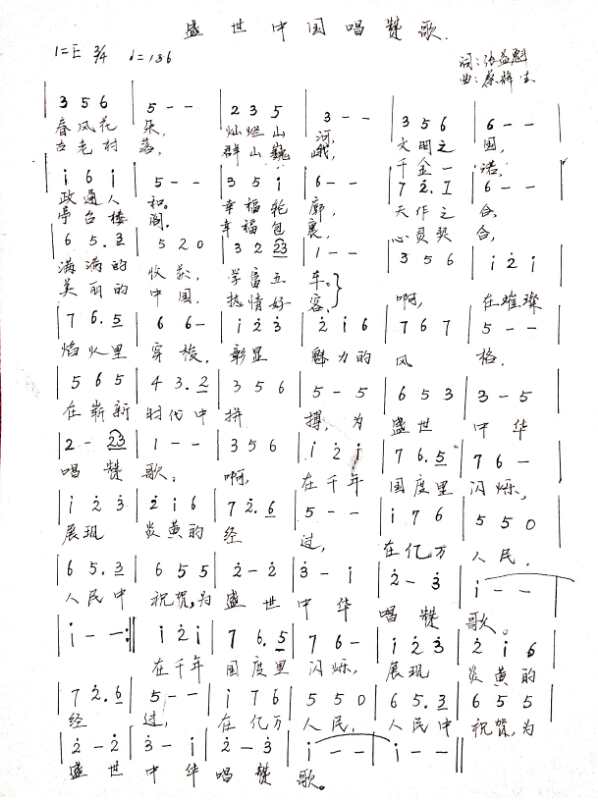 盛世中国唱赞歌.
1=E 3/4 ♩=136
词:伍益魁
曲:蔡辉生
|3 5 6|5 - -|2 3 5|3 - -|3 5 6|6 - -|
春风花 朵, 灿烂山 河, 文明之 国,
古老村 落, 群山巍 峨, 千金一 诺.
|i 6 i|5 - -|3 5 i|6 - -|7 2̇. 7|6 - -|
政通人 和。 幸福轮 廓, 天作之 合,
亭台楼 阁. 幸福包 裹, 心灵契 合,
|6 5. 3|5 2 0|3 2 23|1 - -|3 5 6|i 2̇ i|
满满的 收获, 学富五 车。 啊, 在璀璨
美丽的 中国. 热情好 客,
|7 6. 5|6 6 -|i 2̇ 3̇|2̇ i 6|7 6 7|5 - -|
焰火里 穿梭, 彰显 魅力的 风 格.
|5 6 5|4 3. 2|3 5 6|5 - 5|6 5 3|3 - 5|
在崭新 时代中 拼 搏, 为 盛世 中华
|2 - 23|1 - -|3 5 6|i 2̇ i|7 6. 5|7 6 -|
唱赞 歌, 啊, 在千年 国度里 闪烁,
|i 2̇ 3̇|2̇ i 6|7 2̇. 6|5 - -|i 7 6|5 5 0|
展现 炎黄的 经 过, 在亿万 人民.
|6 5. 3|6 5 5|2̇ - 2̇|3̇ - i|2̇ - 3̇|i - -|
人民中 祝贺,为 盛世 中华 唱赞 歌。
|i - - :||i 2̇ i|7 6. 5|7 6 -|i 2̇ 3̇|2̇ i 6|
在千年 国度里 闪烁, 展现 炎黄的
|7 2̇. 6|5 - -|i 7 6|5 5 0|6 5. 3|6 5 5|
经 过, 在亿万 人民, 人民中 祝贺,为
|2̇ - 2̇|3̇ - i|2̇ - 3̇|i - -|i - -||
盛世 中华 唱赞 歌。